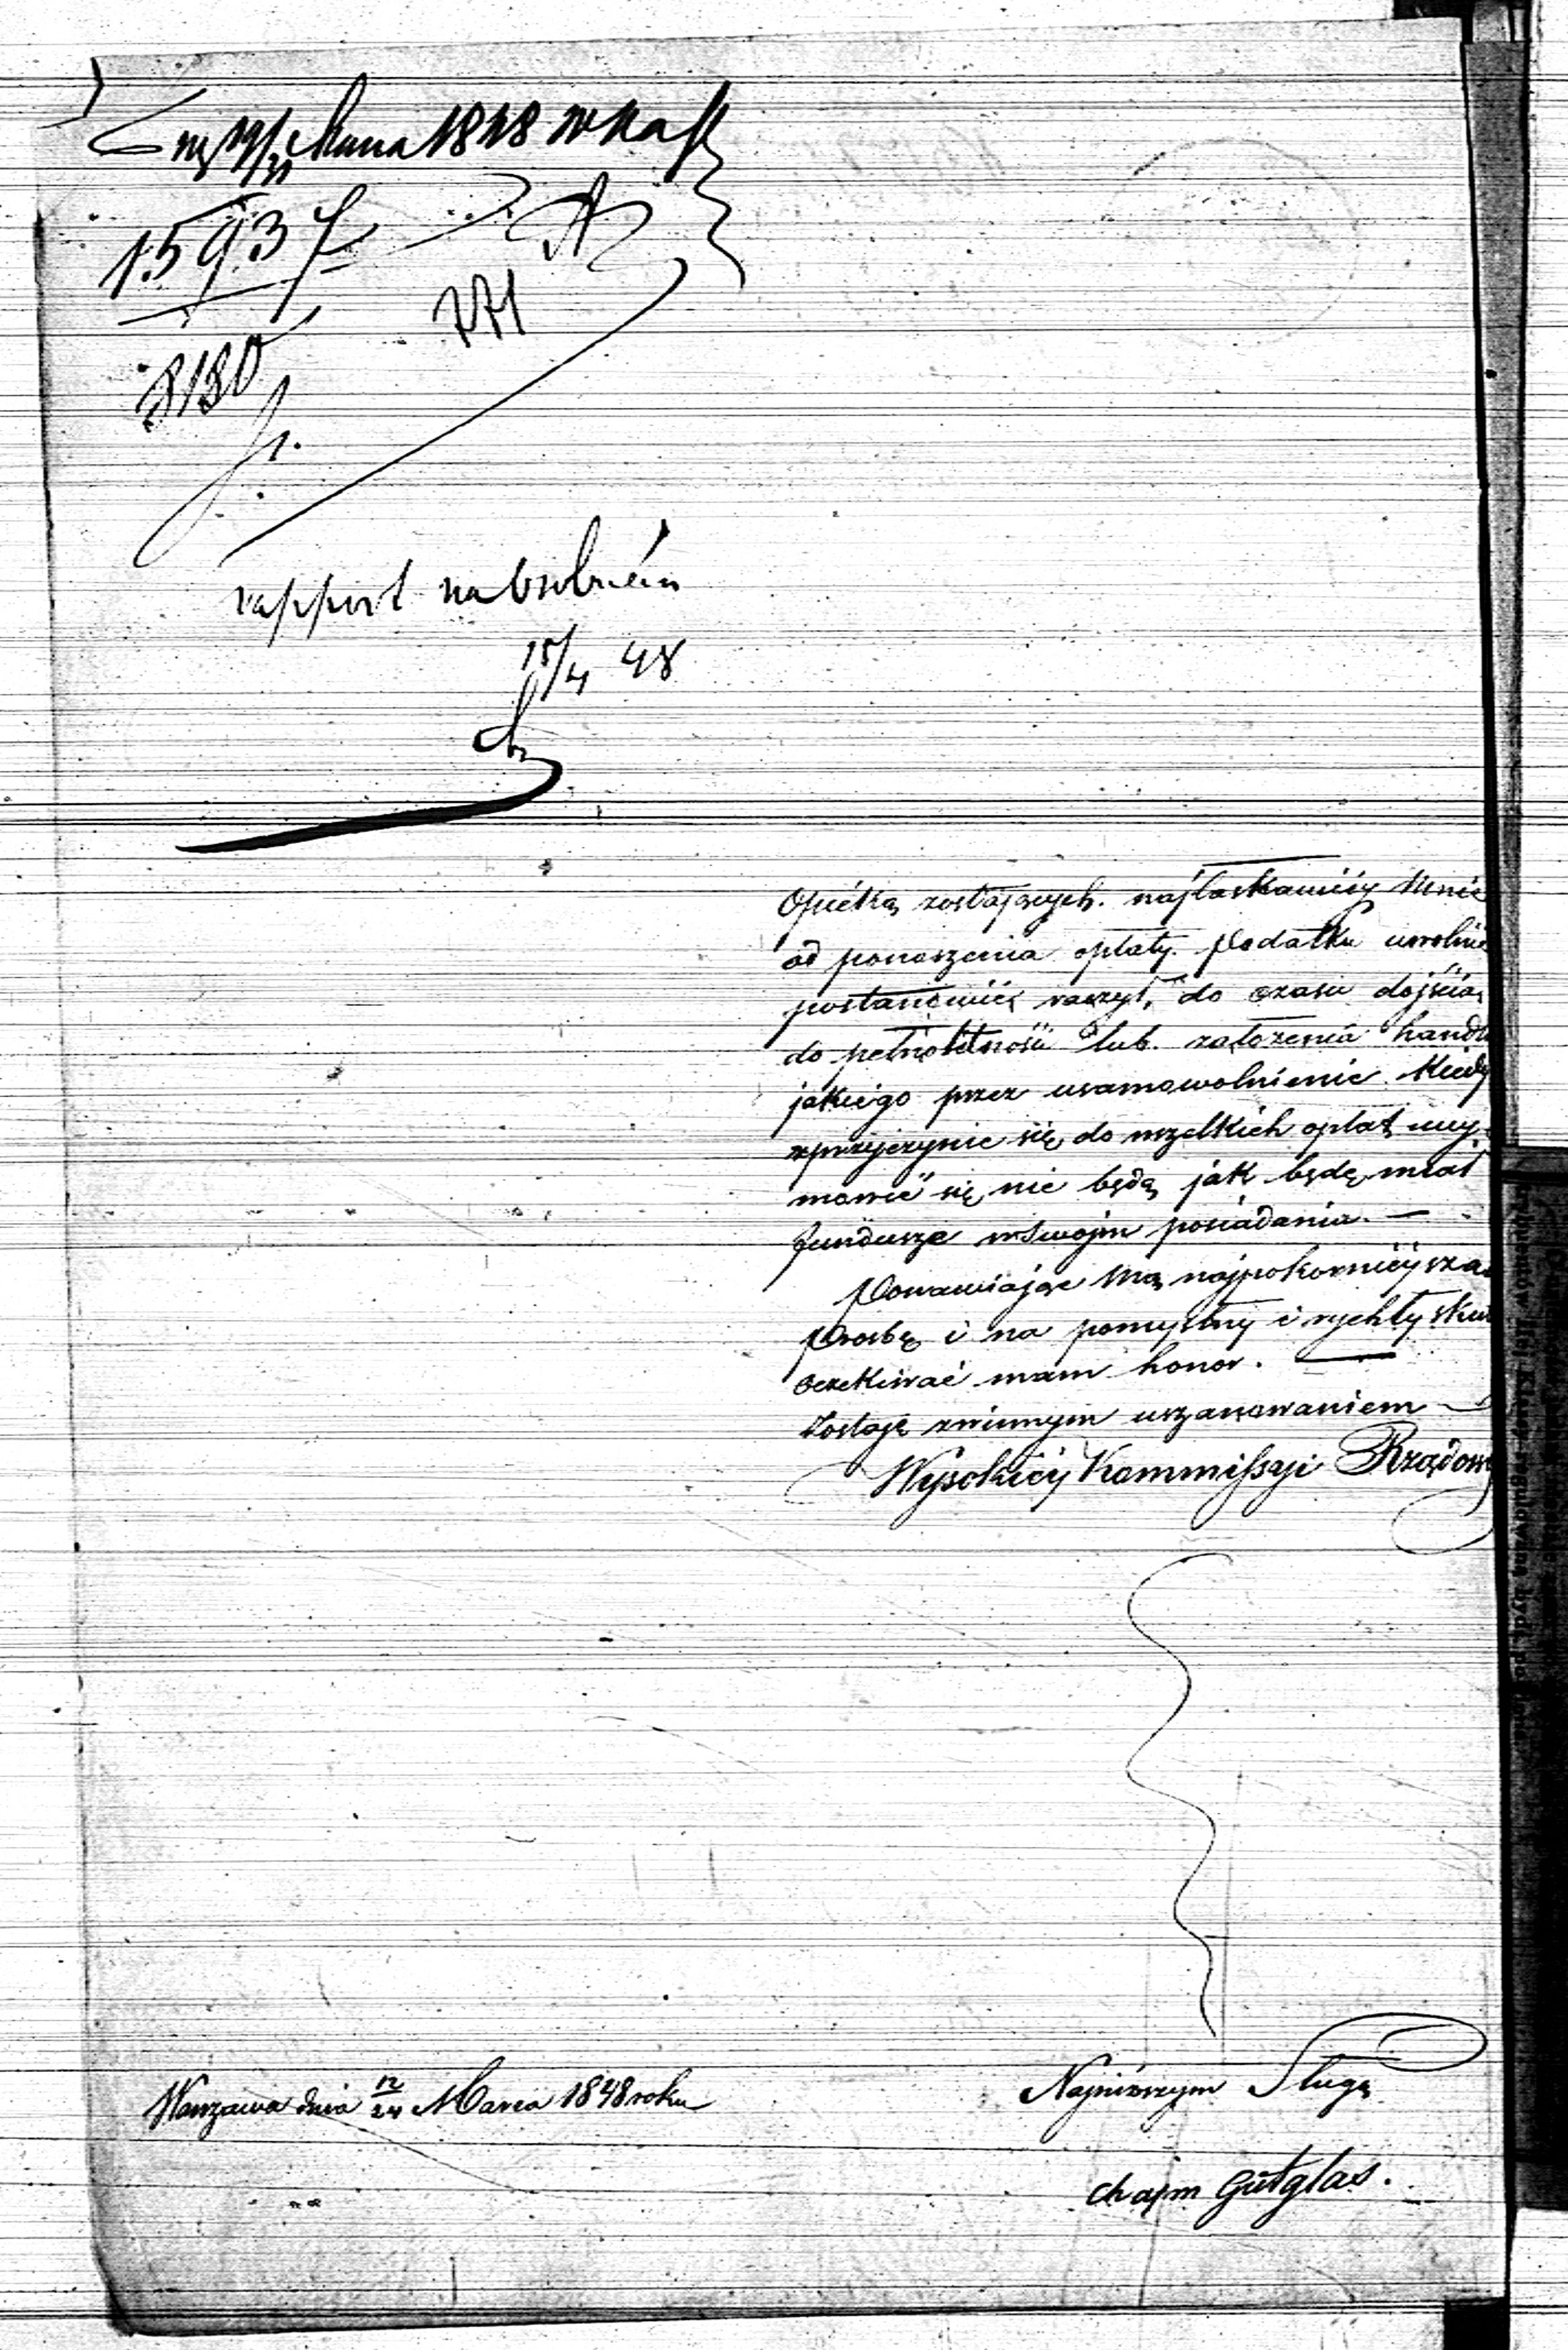 1848 w Kass
15937
771
8180
rapport na osobném
15/4 48
Opiéką zostających. najłaskawiéy Mnie
od ponoszenia opłaty Podatku uwolnić
postanowić raczył, do czasu dojścia
do pełnoletnosci lub. założenia handlu
jakiego przez usamowolnienie. Kiedy
się do wszelkich opłat wuy-
mować się nie będą jak będę miał
fundusze w swojm posiadaniu. —
Ponawiając Mą najpokornieyszą
Prosbę i na pomyslny i rychły skut
oczekiwać mam honor. —
Zostaję zwinnym uszanowaniem
Wysokiéy Kommissyi Rządow
Warszawa dnia 12/24 Marca 1848 roku
Najniższym Sługą
Chajm Gutglas.